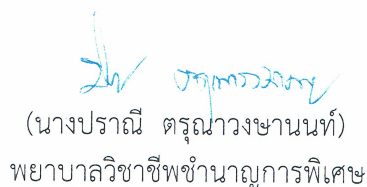 (นางปราณี ตรุณาวงษานนท์)
พยาบาลวิชาชีพชำนาญการพิเศษ